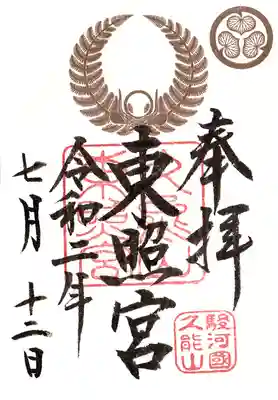 奉拝
東照宮
令和二年
七月 十二日
駿河國
久能山